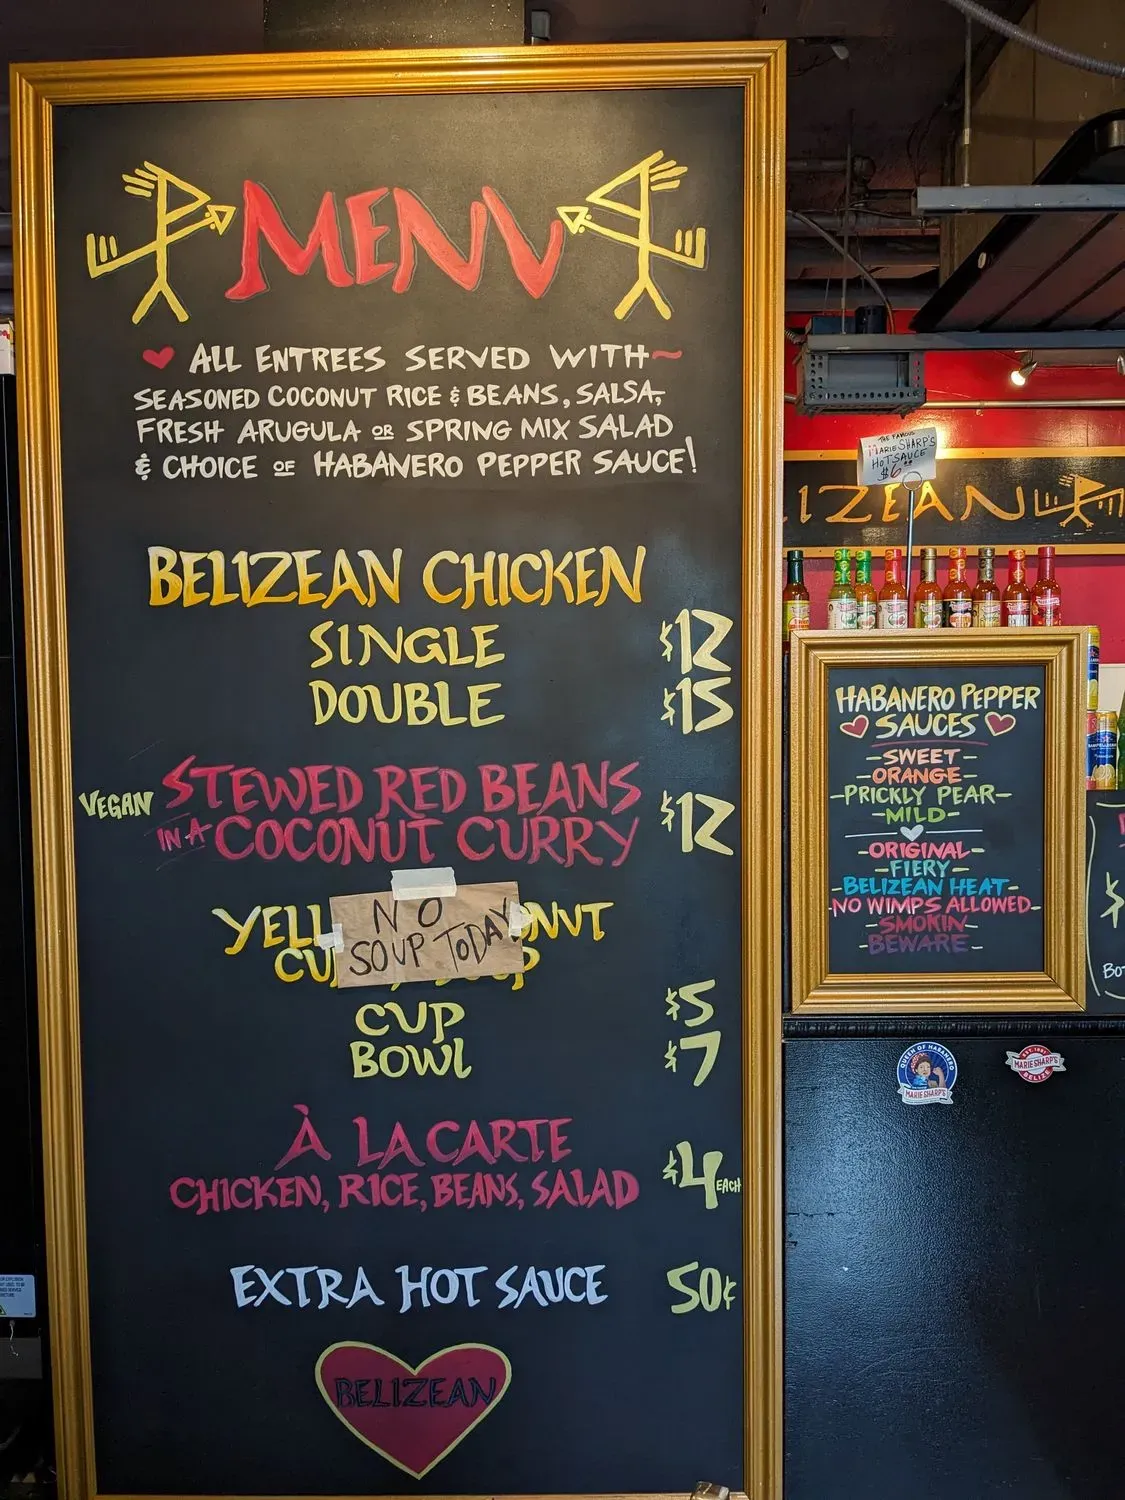 MENU
ALL ENTREES SERVED WITH~
SEASONED COCONUT RICE & BEANS, SALSA,
FRESH ARUGULA OR SPRING MIX SALAD
& CHOICE OF HABANERO PEPPER SAUCE!
BELIZEAN CHICKEN
SINGLE $12
DOUBLE $15
VEGAN STEWED RED BEANS
IN A COCONUT CURRY $12
NO
SOUP TODAY
CUP $5
BOWL $7
À LA CARTE
CHICKEN, RICE, BEANS, SALAD $4 EACH
EXTRA HOT SAUCE 50¢
BELIZEAN
THE FAMOUS
MARIE SHARP'S
HOT SAUCE
$6
IZEAN
HABANERO PEPPER
SAUCES
-SWEET-
-ORANGE-
-PRICKLY PEAR-
-MILD-
-ORIGINAL-
-FIERY-
-BELIZEAN HEAT-
-NO WIMPS ALLOWED-
-SMOKIN-
-BEWARE-
QUEEN OF HABANERO
MARIE SHARP'S
MARIE SHARP'S
BELIZE